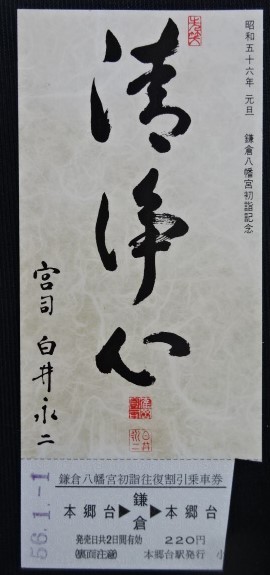 昭和五十六年 元旦 鎌倉八幡宮初詣記念
清浄心
宮司 白井永二
56.1.-1
鎌倉八幡宮初詣往復割引乗車券
本郷台▶鎌倉▶本郷台
発売日共2日間有効 220円
(裏面注意) 本郷台駅発行 小